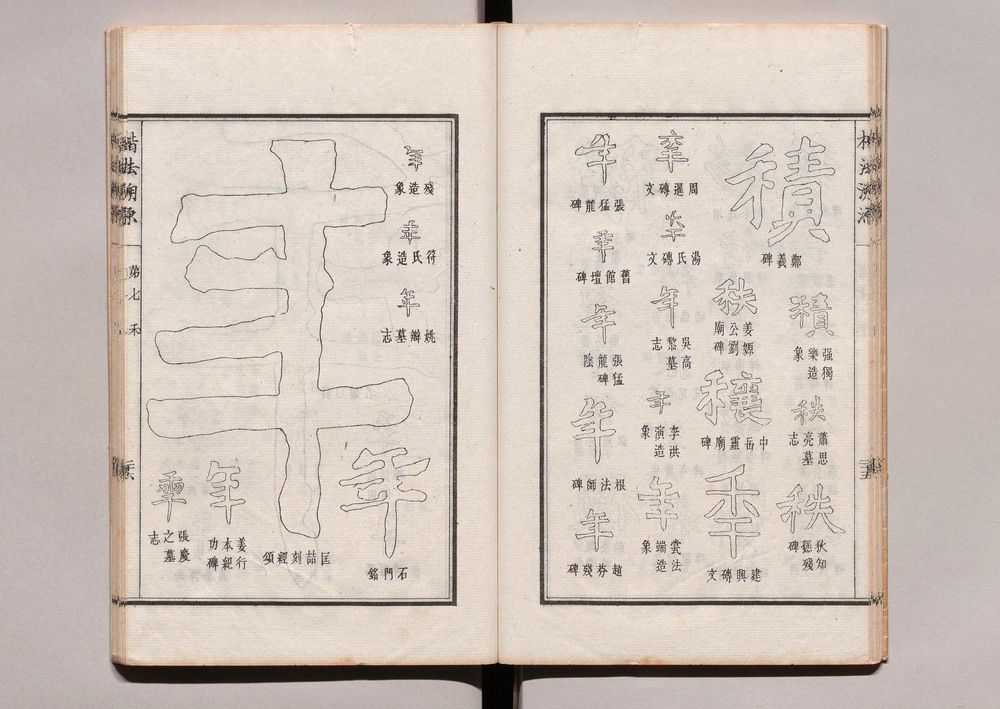 積
鄭義碑
積
强獨樂造象
秩
蕭思亮墓志
秩
狄知愻殘碑
秩
姜嫄公劉廟碑
穰
中岳靈廟碑
年
建興磚文
年
周暹磚文
年
湯氏磚文
年
吳高黎墓志
年
李洪演造象
年
裳法端造象
年
張猛龍碑
年
舊館壇碑
年
張猛龍碑陰
年
根法師碑
年
趙芬殘碑
楷法溯源
第七
禾
年
殘造象
年
符氏造象
年
姚辯墓志
年
石門銘
年
匡喆刻經頌
年
姜行本紀功碑
年
張慶之墓志